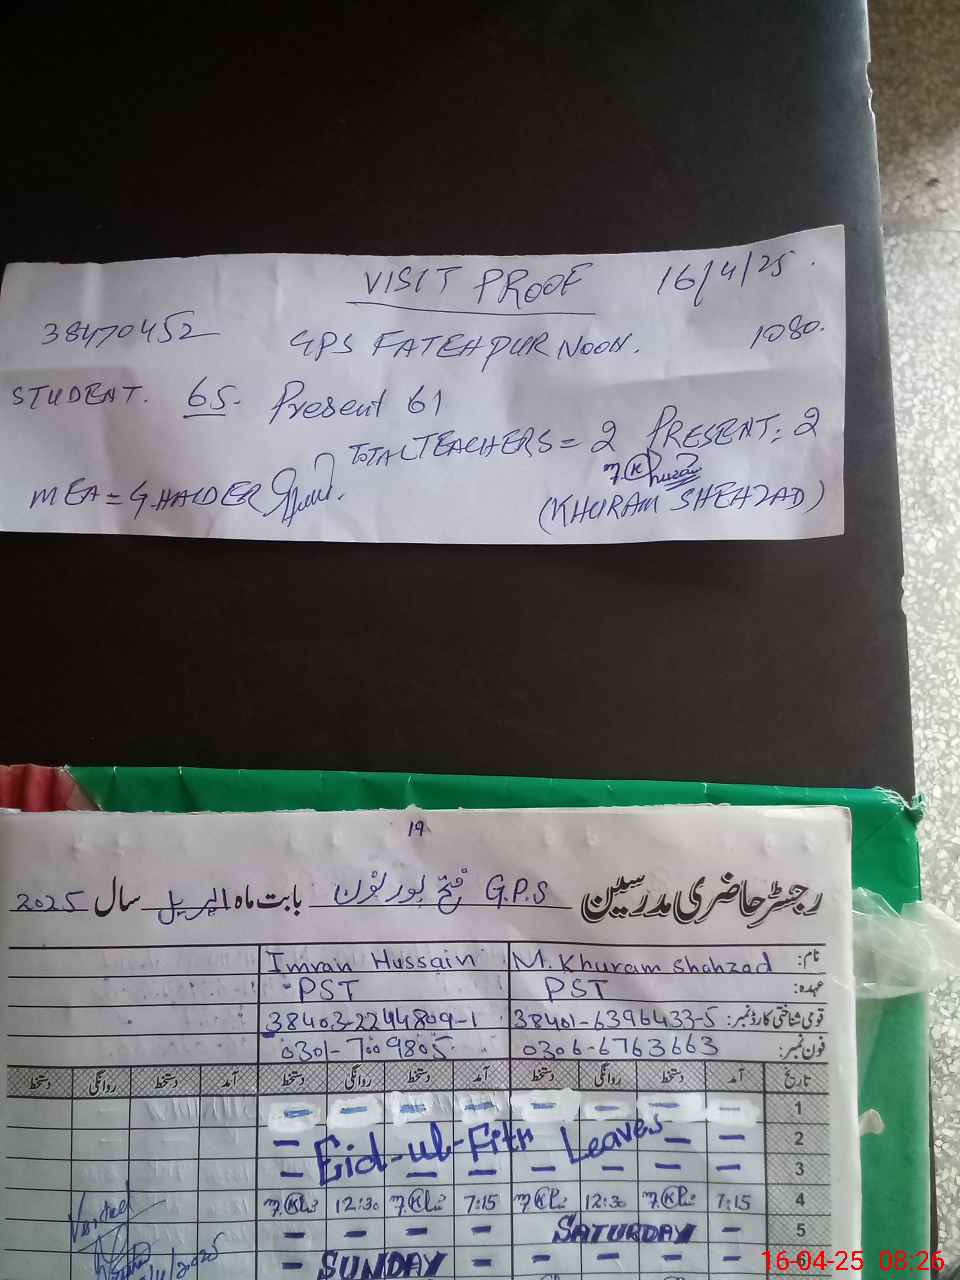 VISIT PROOF 16/4/25.
38470452 GPS FATEHPUR NOON. 1080.
STUDENT. 65. Present 61
TOTAL TEACHERS = 2 PRESENT: 2
MEA = G.HAIDER
(KHURAM SHEHZAD)
19
رجسٹر حاضری مدرسین G.P.S فتح پور نون بابت ماہ اپریل سال 2025
نام: M. Khuram Shahzad Imran Hussain
عہدہ: PST PST
قومی شناختی کارڈ نمبر: 38401-6396433-5 38403-2244809-1
فون نمبر: 0306-6763663 0301-7009805
تاریخ آمد دستخط روانگی دستخط آمد دستخط روانگی دستخط آمد دستخط روانگی دستخط
1 — — — — — — — —
2 — — —
Eid-ul-Fitr Leaves
3 — — — — — — — —
4 7:15 12:30 7:15 12:30
5 — SATURDAY — — — —
— — — — SUNDAY
Visited
16-04-25 08:26